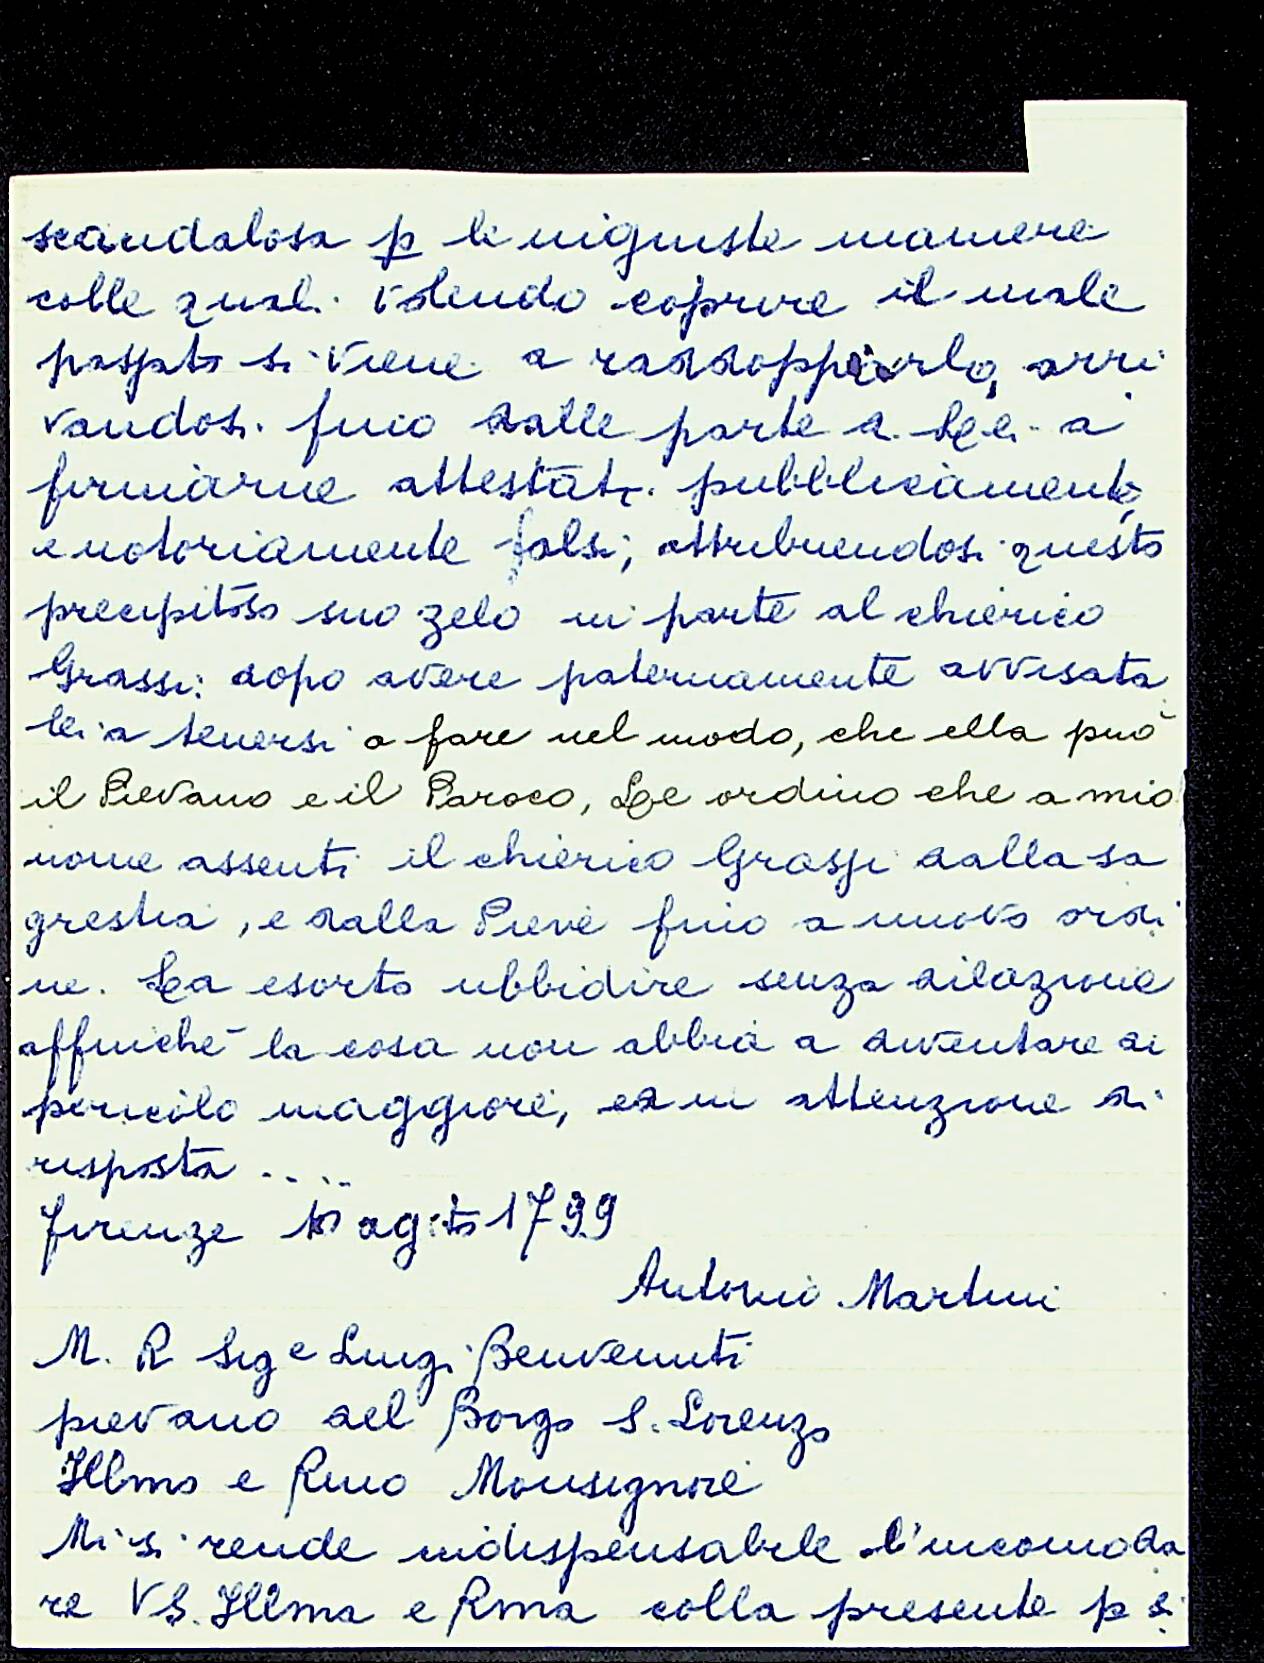 scandalosa p le nigiuste maniere
colle quali volendo coprire il male
passato si viene a raddoppiarlo, arri
vandosi fino dalle parte d. Lei a
firmarne attestati pubblicamente,
e notoriamente falsi; attribuendosi questo
precipitoso suo zelo in parte al chierico
Grassi: dopo avere paternamente avvisata
lei a tenersi a fare nel modo, che ella può
il Pievano e il Paroco, Le ordino che a mio
nome assenti il chierico Grassi dalla sa
grestia, e dalla Pieve fino a nuovo ordi
ne. La esorto ubbidire senza dilazione
affinchè la cosa non abbia a diventare di
pericolo maggiore, ed in attenzione di
risposta ....
firenze agto 1799
Antonio Martini
M. R Sig e Luigi Benvenuti
pievano del Borgo S. Lorenzo
Illmo e Rmo Monsignore
Mi si rende indispensabile l'incomoda
re VS. Illma e Rma colla presente p si